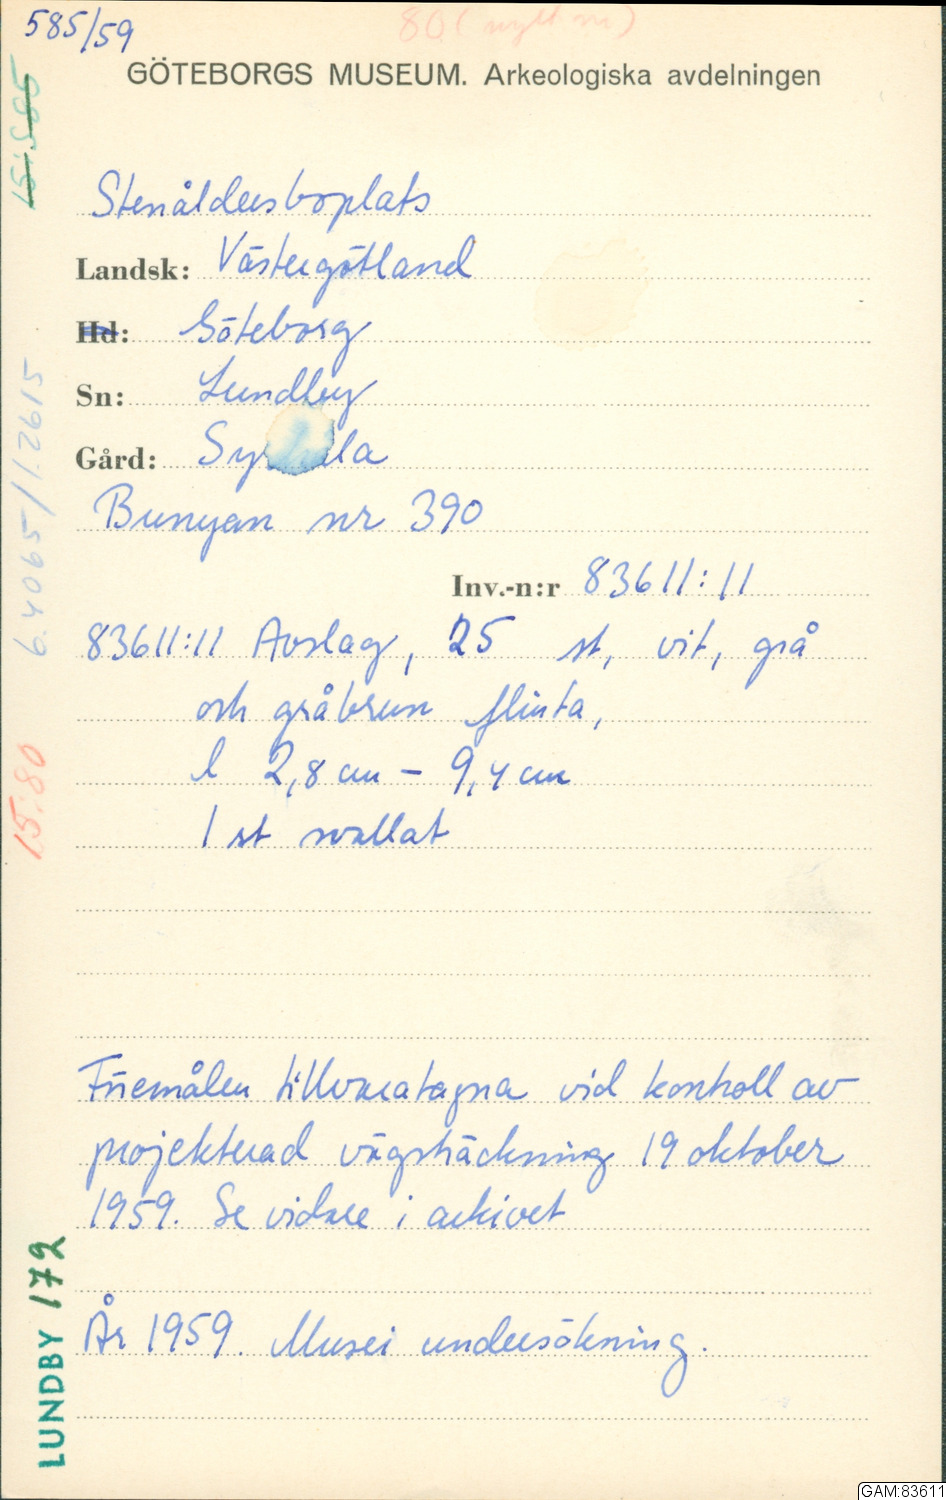 585/59
80 (nytt nr)
GÖTEBORGS MUSEUM. Arkeologiska avdelningen
15:585
Stenåldersboplats
Landsk: Västergötland
Hd: Göteborg
Sn: Lundby
Gård:
Bunyan nr 390
Inv.-n:r 83611:11
83611:11 Avslag, 25 st, vit, grå
och gråbrun flinta,
l 2,8 cm – 9,4 cm
1 st svallat
15:80
Föremålen tillvaratagna vid kontroll av
projekterad vägsträckning 19 oktober
1959. Se vidare i arkivet
År 1959. Musei undersökning.
LUNDBY 172
GAM:83611